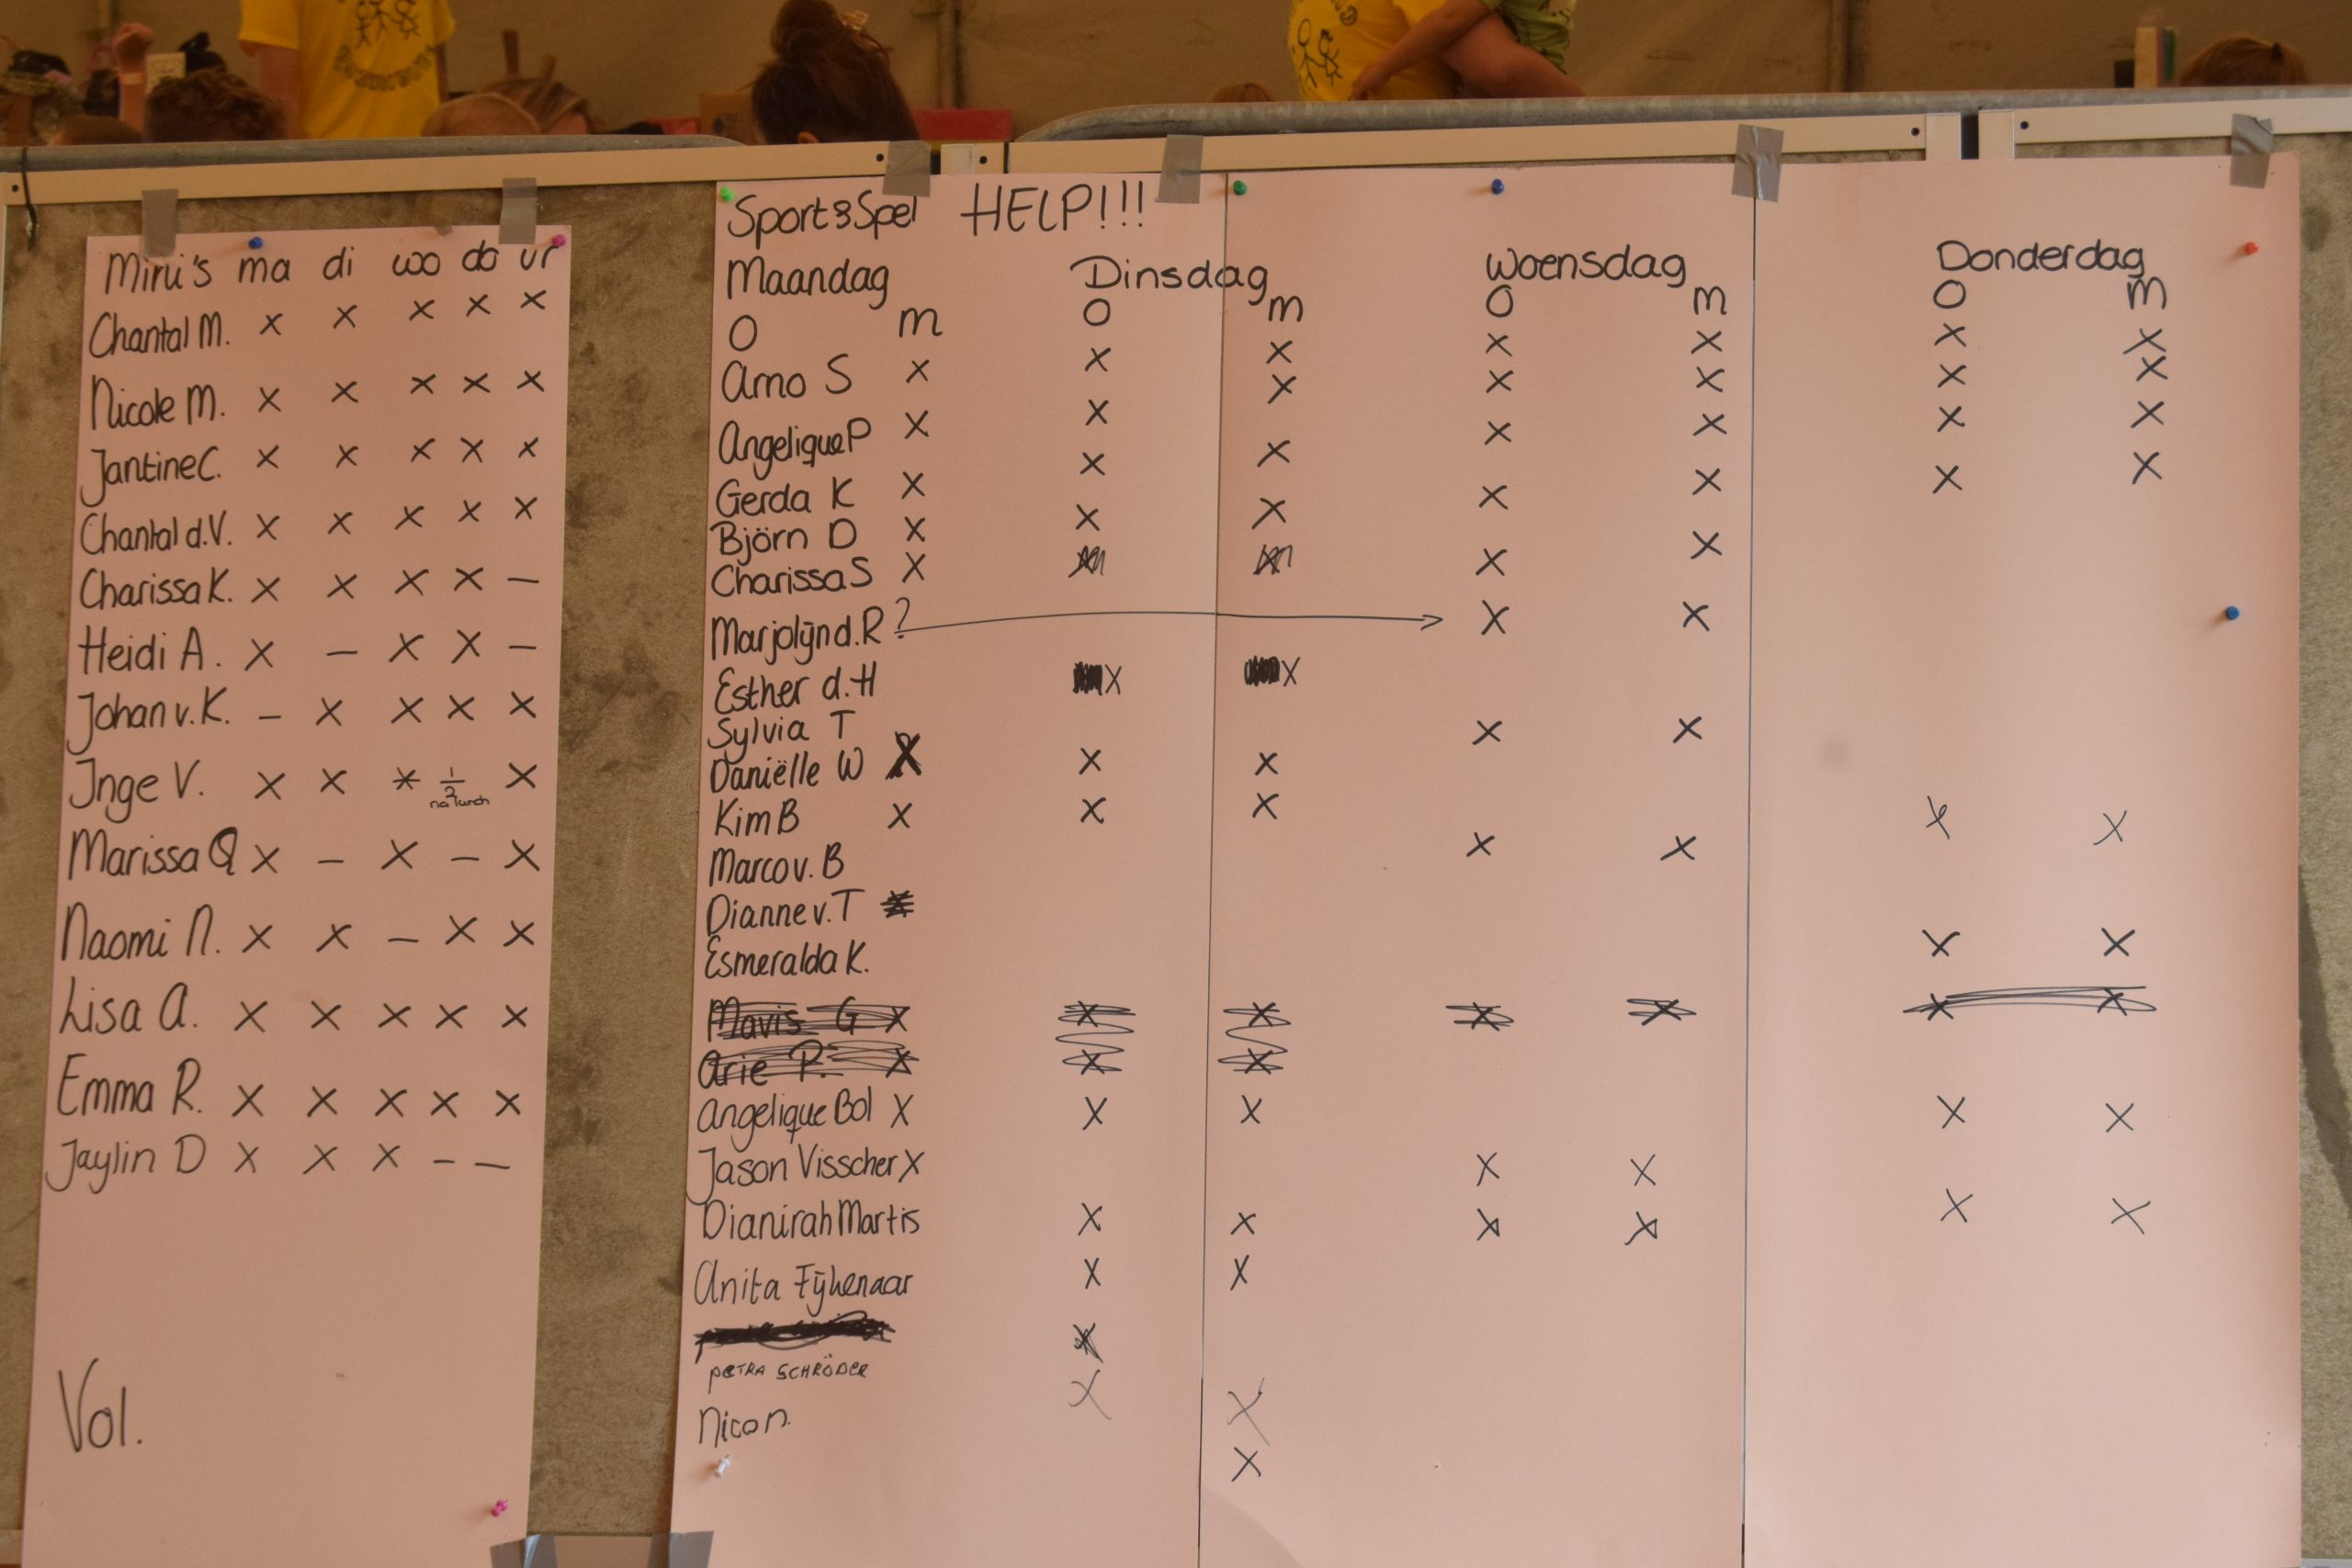 Mini's ma di wo do vr
Chantal M. x x x x x
Nicole M. x x x x x
Jantine C. x x x x x
Chantal d.V. x x x x x
Charissa K. x x x x —
Heidi A. x — x x —
Johan v. K. — x x x x
Inge V. x x * 1/2 x
na lunch
Marissa Q x — x — x
Naomi N. x x — x x
Lisa A. x x x x x
Emma R. x x x x x
Jaylin D x x x — —
Vol.
Sport & Spel HELP!!!
Maandag Dinsdag Woensdag Donderdag
O m O m O m O m
Arno S x x x x x x x
Angelique P x x x x x x x
Gerda K x x x x x x x
Björn D x x x x x x x
Charissa S x x x
Marjolijn d. R ? x x
Esther d. H x x
Sylvia T x x
Daniëlle W x x x
Kim B x x x
Marco v. B x x x x
Dianne v. T
Esmeralda K. x x
Mavis G x x x x x x x
Arie P. x x x
Angelique Bol x x x x x
Jason Visscher x x x
Dianirah Martis x x x x x x
Anita Fijkenaar x x
PETRA SCHRÖDER x x
Nico n. x